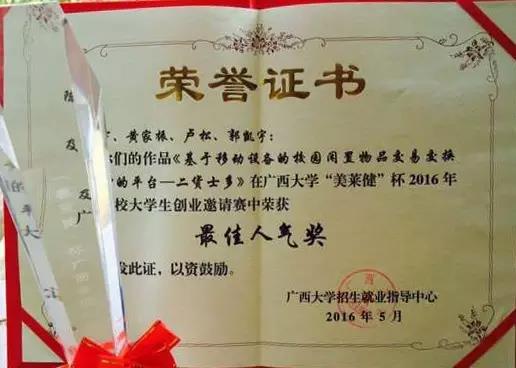 荣誉证书
陈
宇、黄家振、卢松、郭凯宇：
你们的作品《基于移动设备的校园闲置物品交易交换
的平台—二货士多》在广西大学“美莱健”杯2016年
广 校大学生创业邀请赛中荣获
最佳人气奖
发此证，以资鼓励。
广西大学招生就业指导中心
2016年5月